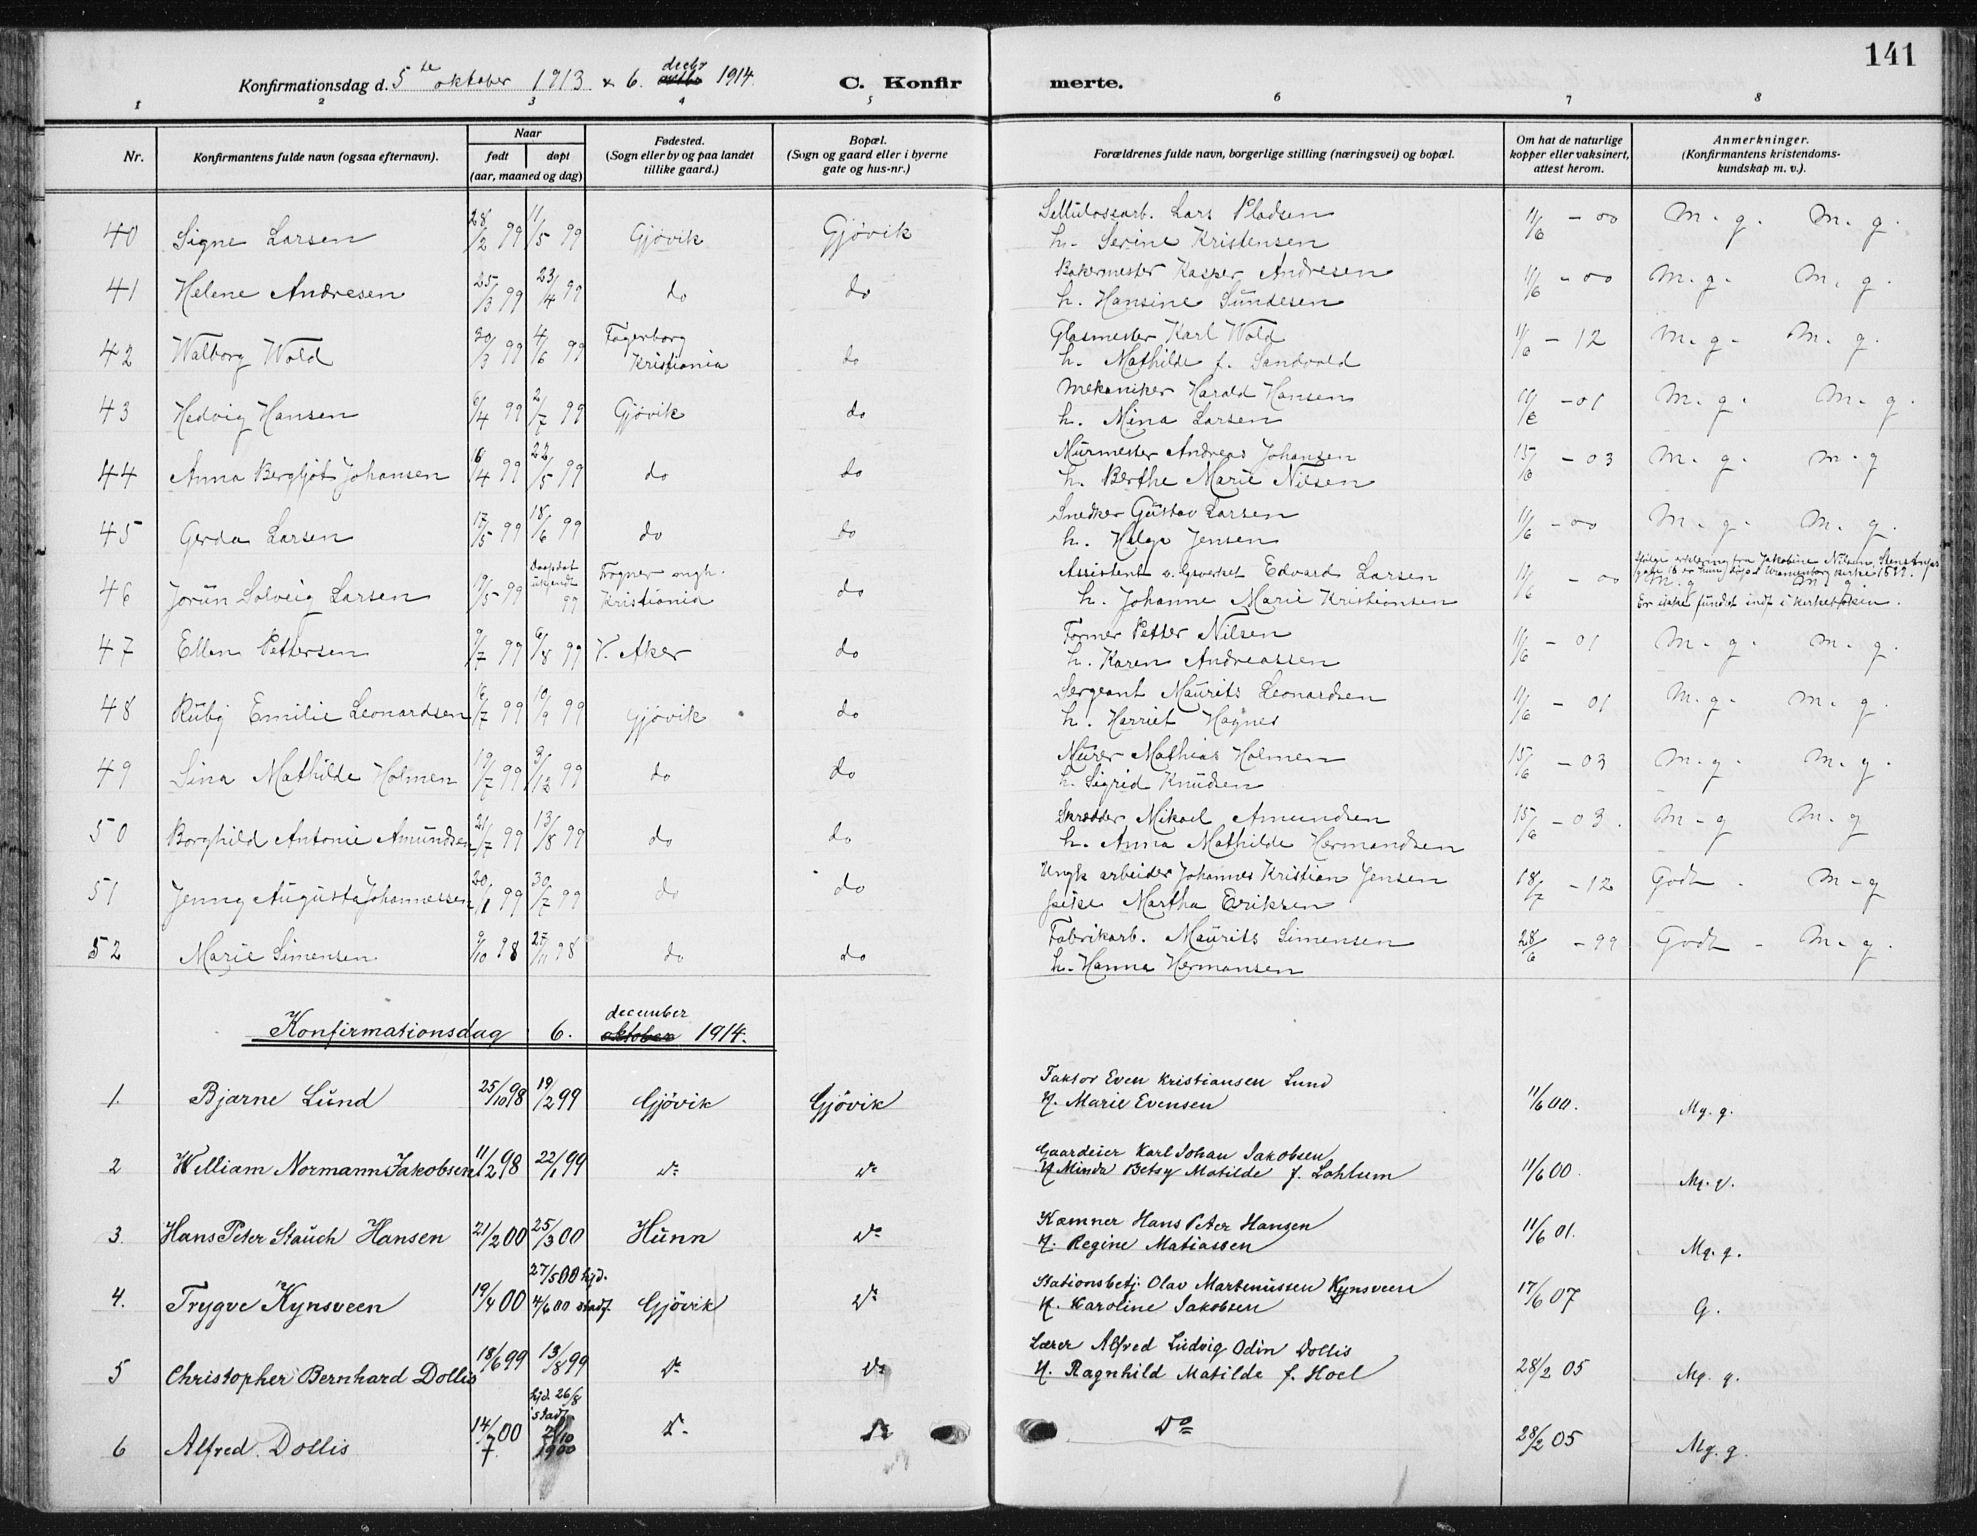 141
Konfirmationsdag d. 5te oktober 1913 & 6. decbr 1914. C. Konfirmerte.
1 2 3 4 5 6 7 8
Nr. | Konfirmantens fulde navn (ogsaa efternavn). | Naar født | døpt (aar, maaned og dag) | Fødested. (Sogn eller by og paa landet tillike gaard.) | Bopæl. (Sogn og gaard eller i byerne gate og hus-nr.) | Forældrenes fulde navn, borgerlige stilling (næringsvei) og bopæl. | Om hat de naturlige kopper eller vaksinert, attest herom. | Anmerkninger. (Konfirmantens kristendoms-kundskap m. v.).
40 Signe Larsen 28/2 99 11/5 99 Gjøvik Gjøvik Sellulosearb. Lars Pladsen h. Serine Kristensen 11/6 - 00 M. g. M. g.
41 Helene Andresen 25/3 99 23/4 99 do do Bakermester Kasper Andresen h. Hansine Sundesen 11/6 - 00 M. g. M. g.
42 Walborg Wold 30/3 99 4/6 99 Fagerborg Kristiania do Glasmester Karl Wold h. Mathilde f. Sandvold 11/6 - 12 M. g. M. g.
43 Hedvig Hansen 6/4 99 2/7 99 Gjøvik do Mekaniker Harald Hansen h. Mina Larsen - 01 M. g. M. g.
44 Anna Bergljot Johansen 6/4 99 22/5 99 do do Murmester Andreas Johansen h. Berthe Marie Nilsen 15/6 - 03 M. g. M. g
45 Gerda Larsen 17/5 99 18/6 99 do do Snedker Gustav Larsen h. Helga Jensen 11/6 - 00 M. g. M. g.
46 Jorun Solveig Larsen 19/5 99 Daapdat ukjendt 99 Fogner mgh. Kristiania do Assistent v. Gsverket Edvard Larsen h. Johanne Marie Kristiansen 11/6 - 00 Ifølge erklæring fra Jakobine Nilsen, Stensto gate 16 er hun døpt Uranienborg kirke 1899. M. g M. g Er ikke fundet indf i Kirkeboken.
47 Ellen Pettersen 9/7 99 6/8 99 V. Aker do Former Petter Nilsen h. Karen Andreassen 11/6 - 01 M. g. M. g.
48 Ruby Emilie Leonardsen 16/7 99 10/9 99 Gjøvik do Sergeant Maurits Leonardsen h. Harriet Haynes 11/6 - 01 M. g. M. g.
49 Lina Mathilde Holmen 19/7 99 3/12 99 do do Murer Mathias Holmen h. Sigrid Knudsen 15/6 - 03 M. g. M. g.
50 Borghild Antonie Amundsen 21/7 99 13/8 99 do do Skrædder Mikael Amundsen h. Anna Mathilde Hermandsen 15/6 - 03. M - g M. g
51 Jenny Augusta Johannessen 30/1 99 30/7 99 do do Ungk arbeider Johannes Kristian Jensen pike Martha Eriksen 18/7 - 12 Godt. M - g
52 Marie Simensen 9/10 98 27/11 98 do do Fabrikarb. Maurits Simensen h. Hanna Hermansen 28/6 - 99 Godt - M. g.
Konfirmationsdag 6. oktober december 1914.
1. Bjarne Lund 25/10 98 19/2 99 Gjövik Gjövik Faktor Even Kristiansen Lund H. Marie Evensen 11/6 00. Mg. g.
2 William Normann Jakobsen 11/12 98 22/1 99 Do Do Gaardeier Karl Johan Jakobsen H. Minda Betsy Matilde f. Lohlum 11/6 00. Mg. g.
3. Hans Peter Stauch Hansen 21/2 00 25/3 00 Hunn Do Kæmner Hans Peter Hansen H. Regine Matiassen 11/6 01. Mg. g.
4. Trygve Kynsveen 19/4 00 27/5 00 hjd. 4/6 00 stadf. Gjövik Do Stationsbetj. Olav Martinussen Kynsveen H. Karoline Jakobsen 17/6 07 G.
5 Christopher Bernhard Dollis 18/6 99 13/8 99 Do Do Lærer Alfred Ludvig Odin Dollis H. Ragnhild Matilde f. Hoel 28/2 05 Mg. g.
6 Alfred Dollis 14/7 00 hjd. 26/8 stadf. 2/10 1900 Do Do Do 28/2 05 Mg. g.